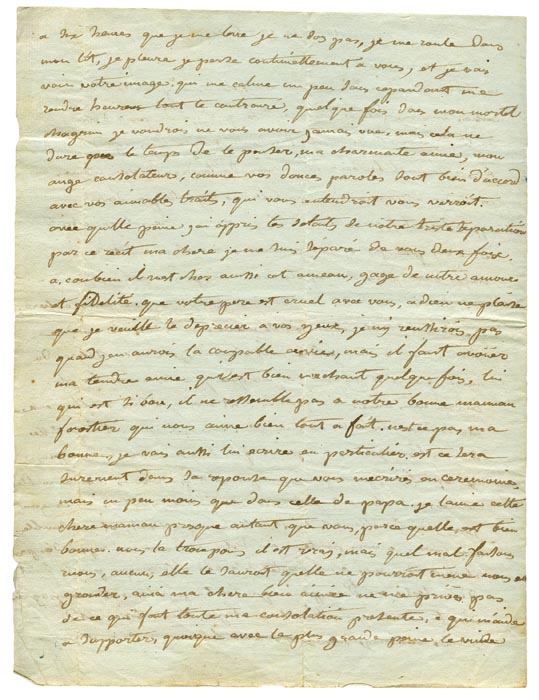 a dix heures que je me leve je ne dos pas, je me roule dans
mon lôt, je pleure je panse continuellement a vous, et je vais
voir votre image qui me calme un peu sans cependant me
rendre heureux tout le contraire, quelque fois dans mon mortel
chagrin je voudrois ne vous avoir jamais vue, mais cela ne
dure que le temps de le penser, ma charmante amie, mon
ange consolateurs, comme vos douces paroles sont bien d'accord
avec vos aimables traits, qui vous entendroit vous verroit.
avec quelle peine j'ai appris les details de notre triste separation
par ce récit ma chere je me suis separé de vous deux fois
a, combien il m'est cher aussi cet anneau, gage de votre amour
et fidelité. que votre pere est cruel avec vous, a dieu ne plaise
que je veuille le deprecier a vos yeux, je n'y reussirois pas
quand j'en aurois la coupable envies, mais il faut avouer
ma tendre amie, qu'il est bien mechant quelque fois, lui
qui est si bon, il ne ressemble pas a notre bonne maman
forestier qui nous aime bien tout a fait. n'est ce pas ma
bonne, je vais aussi lui ecrire en particulier, est ce sera
surement dans la reponse que vous m'ecrirés en ceremonies
mais un peu moins que dans celle de papa, je l'aime cette
chere maman presque autant que vous, parce quelle est bien
bonne. nous la trompons il est vrai, mais quel mal faisons
nous, aucun, elle le sauroit quelle ne pourroit meme nous en
gronder, ainsi ma chere bien aimée ne me privés pas
de ce qui fait toute ma consolation presente, e qui m'aide
a supporter, quoique avec la plus grande peine, le vuide